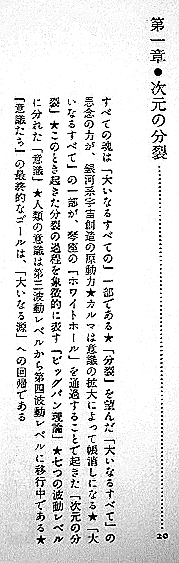 第一章●次元の分裂……………………20
すべての魂は「大いなるすべての」一部である★「分裂」を望んだ「大いなるすべて」の
思念の力が、銀河系宇宙創造の原動力★カルマは意識の拡大によって帳消しになる★「大
いなるすべて」の一部が、琴座の「ホワイトホール」を通過することで起きた「次元の分
裂」★このとき起きた分裂の過程を象徴的に表す「ビッグバン理論」★七つの波動レベル
に分れた「意識」★人類の意識は第三波動レベルから第四波動レベルに移行中である★
「意識たち」の最終的なゴールは、「大いなる源」への回帰である